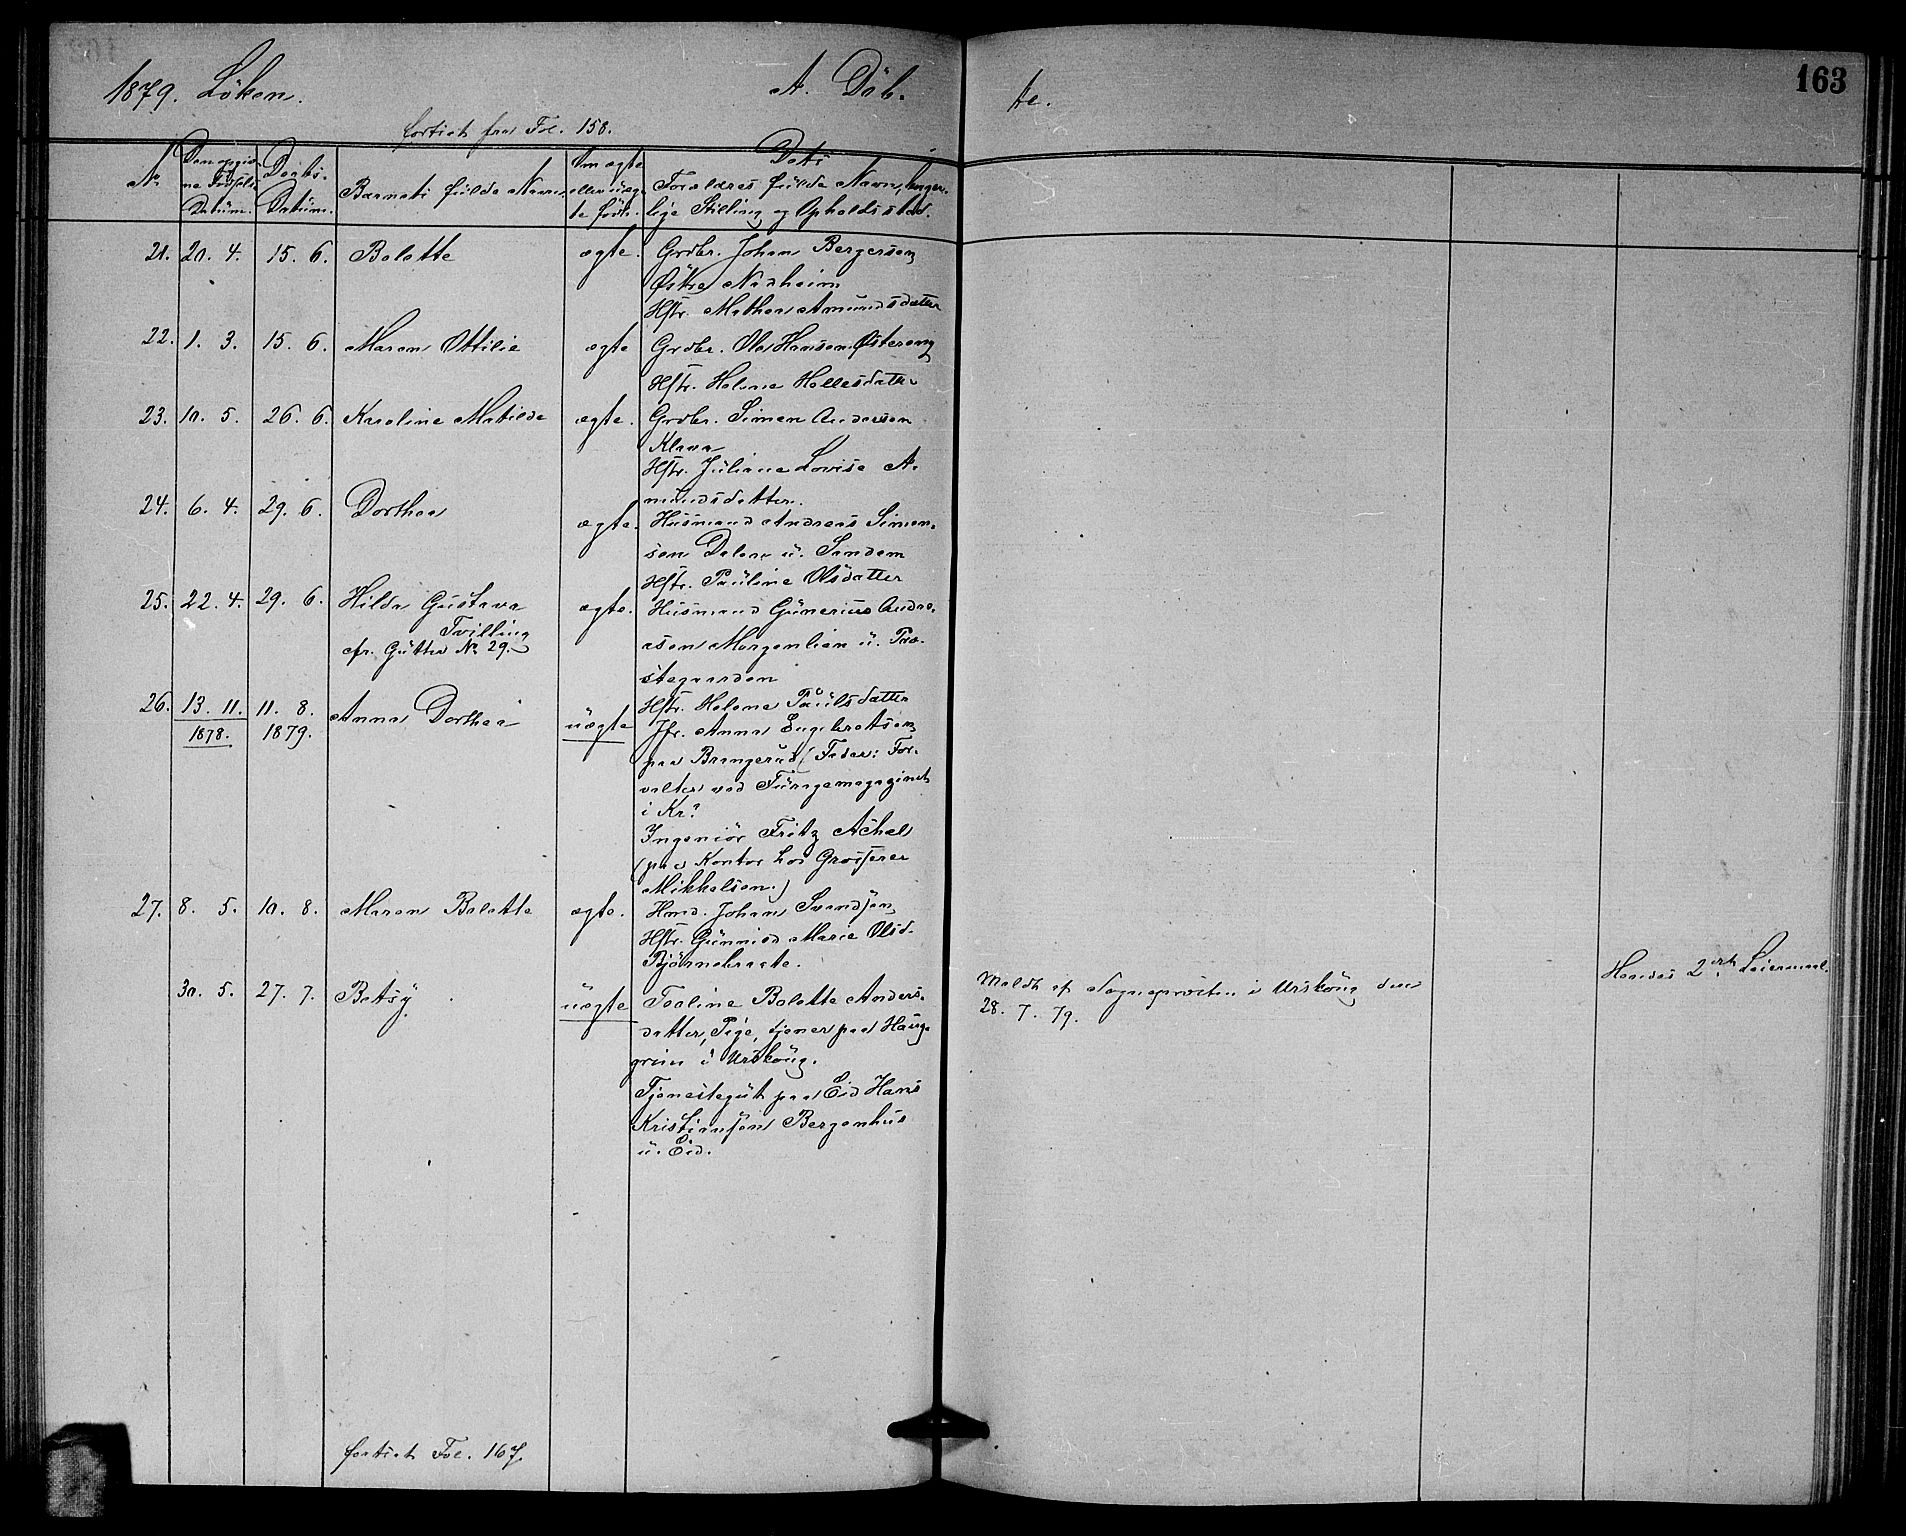 163
1879. Löken. A. Döb- te.
fortsat fra Fol. 158.
No. Den opgivne Fødsels Datum. Daabs-Datum. Barnets fulde Navn. Om ægte eller uægte født. Dets Forældres fulde Navn, borgerlige Stilling og Opholdssted.
21. 20. 4. 15. 6. Bolette ægte. Grdbr. Johan Bergersen
Østre Nadheim
Hstr. Mathea Amundsdatter
22. 1. 3. 15. 6. Maren Ottilie ægte Grdbr. Ole Hansen Østereng
Hstr. Helene Hellesdatter
23. 10. 5. 26. 6. Karoline Matilde ægte. Grdbr. Simen Andersen
Klava
Hstr. Juliane Lovise A-
mundsdatter.
24. 6. 4. 29. 6. Dorthea ægte. Husmand Andreas Simen-
sen Dalen u. Sandem
Hstr. Pauline Olsdatter
25. 22. 4. 29. 6. Hilda Gustava ægte. Husmand Gunerius Andre-
Tvilling
cfr. Gutter No 29.
asen Morgenlien u. Præ-
stegaarden
Hstr. Helene Paulsdatter
26. 13. 11. 11. 8. Anna Dorthea uægte Jfr. Anna Engebretsen
1878. 1879.
paa Brangerud (Fader: For-
valter ved Furagemagazinet
i Kr.a
Ingeniør Fritz Achel
(paa Kontor hos Grosserer
Mikkelsen.)
27. 8. 5. 10. 8. Maren Bolette ægte. Hmd. Johan Svendsen
Hstr. Gunnild Marie Olsd.
Bjørnebraate.
30. 5. 27. 7. Betsy uægte Toaline Bolette Anders-
datter, Pige, tjener paa Haug-
grim i Urskoug.
Tjenestegut paa Eid Hans
Kristiansen Bergenhus
u. Eid.
Meldt af Sognepræsten i Urskoug den
28. 7. 79.
Hendes 2det Leiermaal.
fortsat Fol. 167.